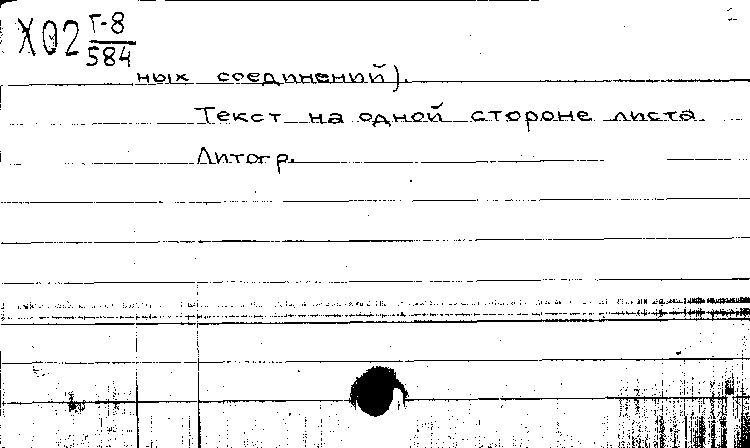 Х02 Г-8/584
ных соединений).
Текст на одной стороне листа
Литогр.